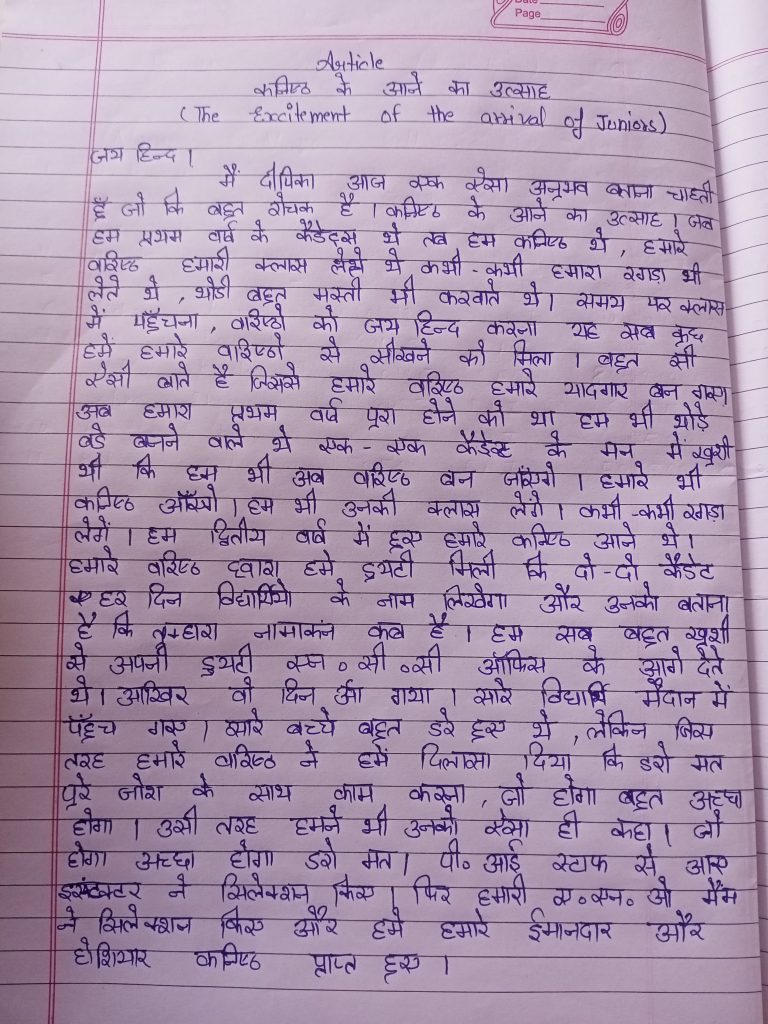 Date
Page
Article
कनिष्ठ के आने का उत्साह
(The Excitement of the arrival of Juniors)
जय हिन्द ।
मैं दीपिका आज एक ऐसा अनुभव बताना चाहती
हूँ जो कि बहुत रोचक है । कनिष्ठ के आने का उत्साह । जब
हम प्रथम वर्ष के कैडेट्स थे तब हम कनिष्ठ थे , हमारे
वरिष्ठ हमारी क्लास लेते थे कभी - कभी हमारा रगड़ा भी
लेते थे , थोडी बहुत मस्ती भी करवाते थे । समय पर क्लास
में पहुँचना , वरिष्ठो को जय हिन्द करना यह सब कुछ
हमें हमारे वरिष्ठो से सीखने को मिला । बहुत सी
ऐसी बाते है जिससे हमारे वरिष्ठ हमारे यादगार बन गए।
अब हमारा प्रथम वर्ष पूरा होने को था हम भी थोड़े
बडे बनने वाले थे एक - एक कैडेट के मन में खुशी
थी कि हम भी अब वरिष्ठ बन जाएंगे । हमारे भी
कनिष्ठ आँएगे । हम भी उनकी क्लास लेंगे । कभी -कभी रगड़ा
लेगें । हम द्वितीय वर्ष में हुए हमारे कनिष्ठ आने थे ।
हमारे वरिष्ठ द्वारा हमे ड्यूटी मिली कि दो - दो कैडेट
हर दिन विद्यार्थियो के नाम लिखेगा और उनको बताना
है कि तुम्हारा नामाकंन कब है । हम सब बहुत खुशी
से अपनी ड्युटी एन ० सी ० सी ऑफिस के आगे देते
थे । आखिर वो दिन आ गया । सारे विद्यार्थि मैदान में
पहुँच गए । सारे बच्चे बहुत डरे हुए थे , लेकिन जिस
तरह हमारे वरिष्ठ ने हमें दिलासा दिया कि डरो मत
पूरे जोश के साथ काम करना , जो होगा बहुत अच्छा
होगा । उसी तरह हमने भी उनको ऐसा ही कहा । जो
होगा अच्छा होगा डरो मत । पी० आई स्टाफ से आए
इंस्ट्रक्टर ने सिलेक्शन किए । फिर हमारी ए०एन० ओ मैम
ने सिलेक्शन किए और हमे हमारे ईमानदार और
होशियार कनिष्ठ प्राप्त हुए ।